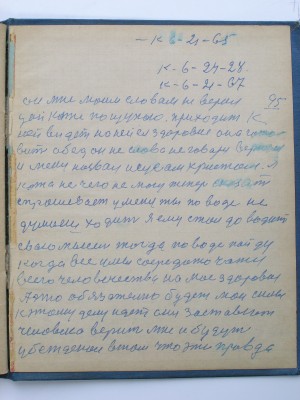 – К 6-21-65
К-6-24-28.
К-6-21-67
он мне моим словам не верел
95
дой коже по щупею. приходит к
ней видет по ней ся здоровия она гото
вит обед он не слова не говоря вернол
и меня назвал исусам христом. я
кота не чего не могу тепер сказат
спрашевает у меня ты по воде не
думаеш ходит я ему стал до водит
свою мысел тогда по воде пайду
когда все силы сосредоточател
всего человечества на мое здоровия
А это обязателно будет мои силы
к этому делу идет они заставест
человека верит мне и будут
убежденой в том что это правда